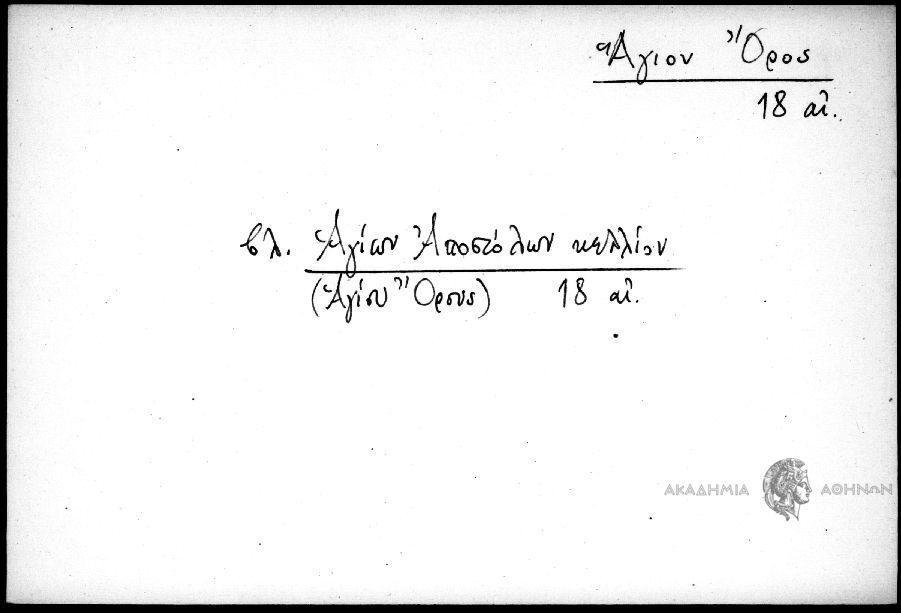 Ἅγιον Ὄρος
18 αἰ.
βλ. Ἁγίων Ἀποστόλων κελλίον
(Ἁγίου Ὄρους) 18 αἰ.
ΑΚΑΔΗΜΙΑ ΑΘΗΝΩΝ